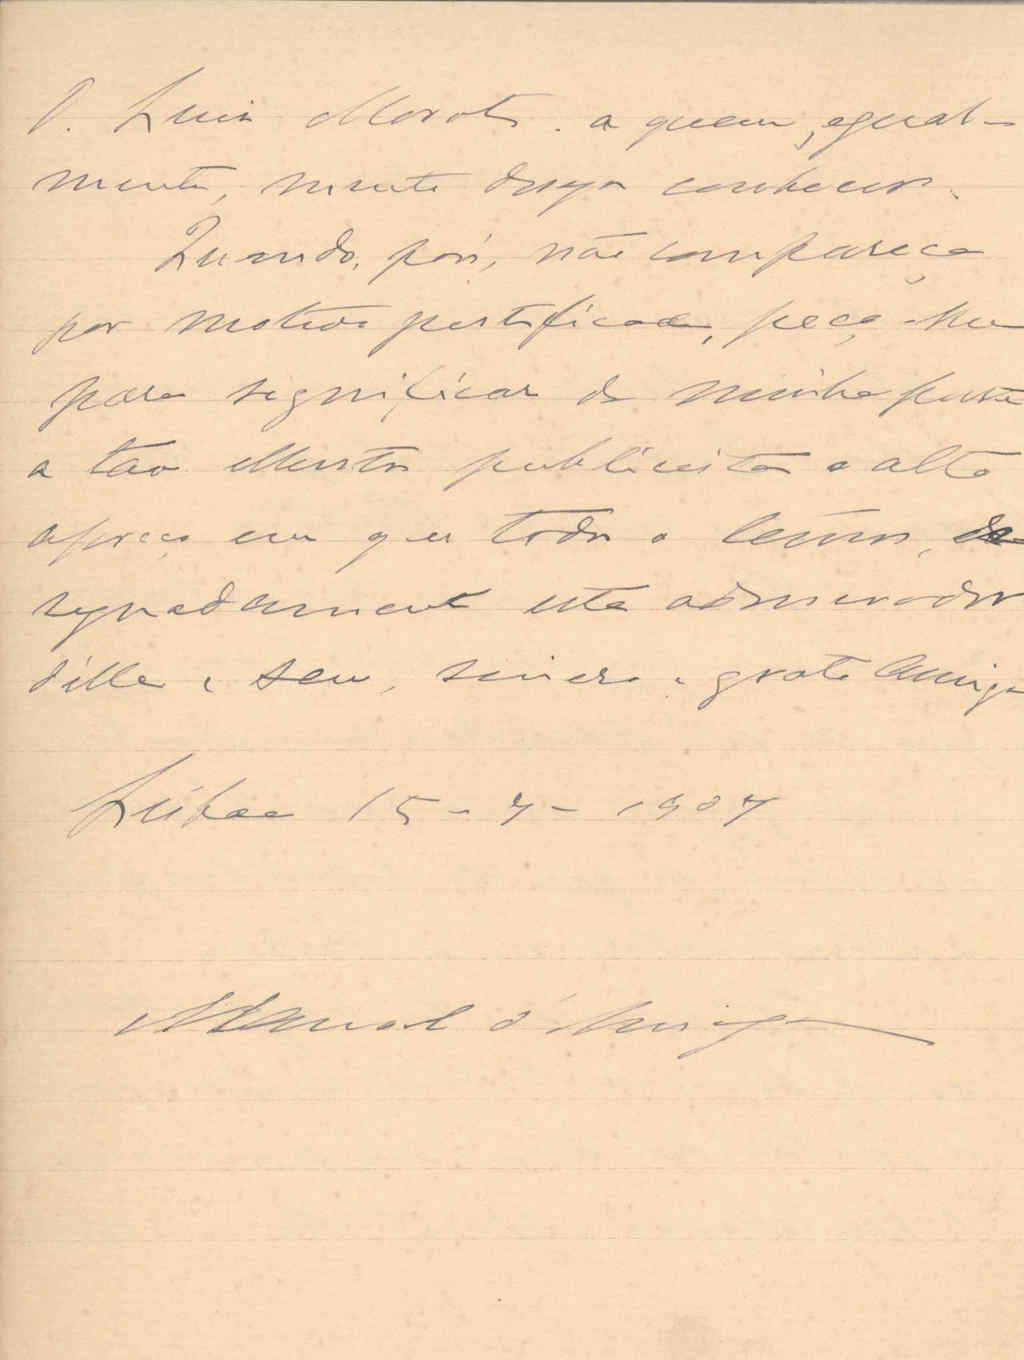 D. Luis Morote. a quem, egual-
mente, muito desejo conhecer.
Quando, porém, não compareça
por motivo justificado, peço-lhe
para significar da minha parte
a tão illustre publicista o alto
apreço em que todos o temos, de
signadamente este admirador
d'elle e seu, sincero e grato amigo
Lisboa 15-7-1907
Manuel d'